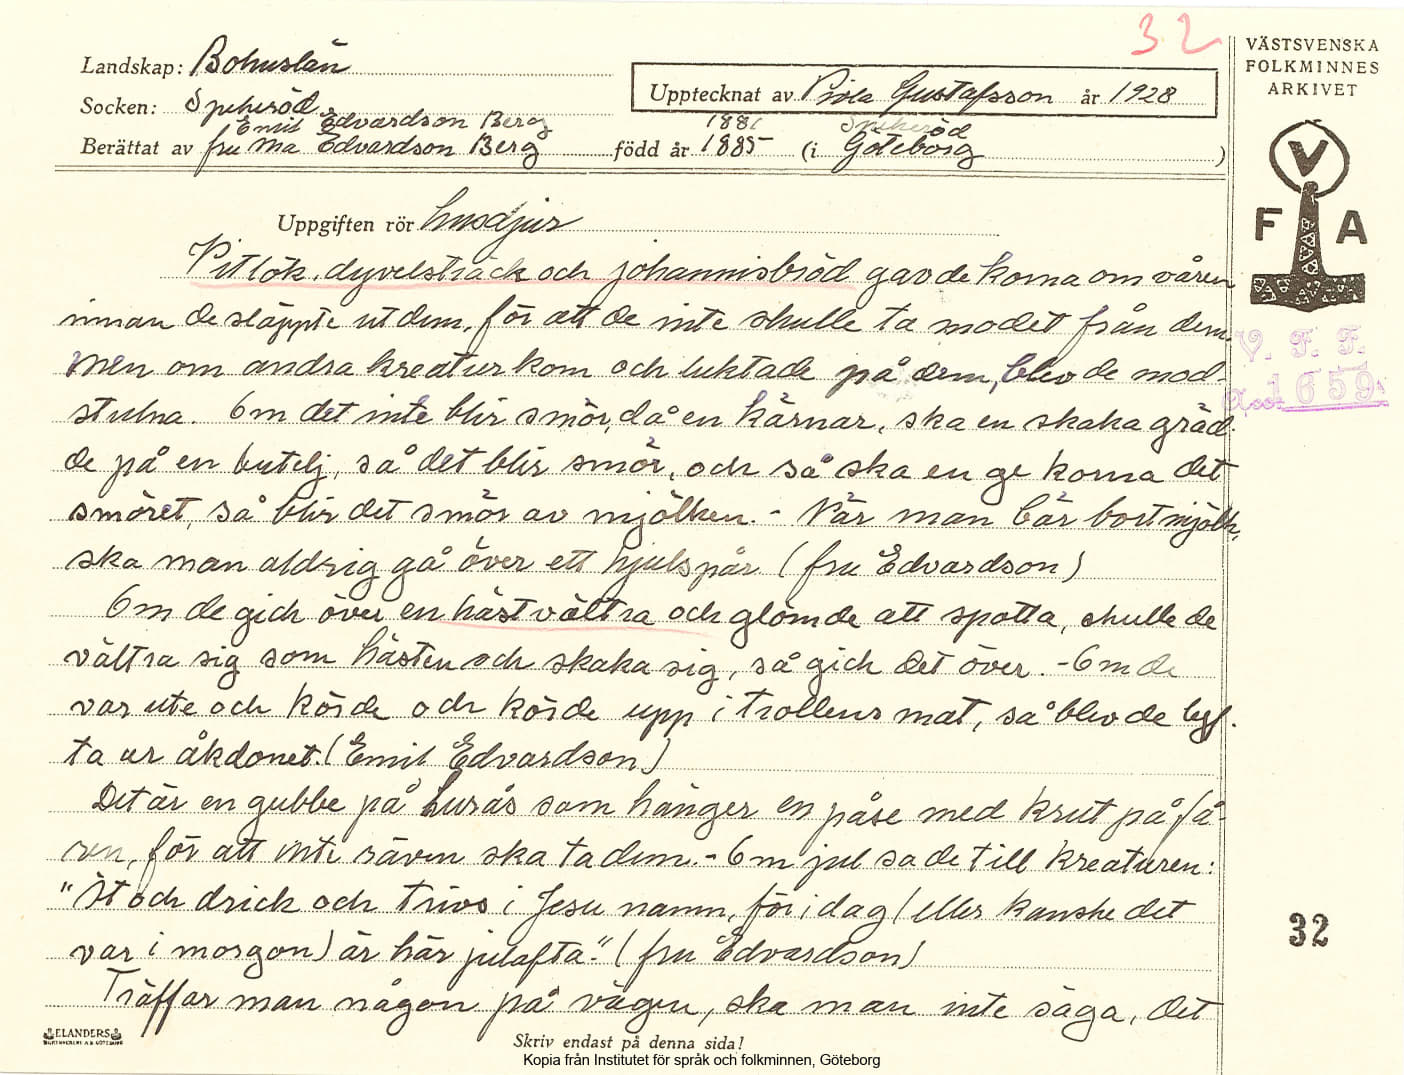 32
Landskap: Bohuslän
Socken: Spekeröd
Upptecknat av Viola Gustafsson år 1928
Emil Edvardson Berg 1881 Spekeröd
Berättat av fru Ma Edvardson Berg född år 1885 (i Göteborg )
VÄSTSVENSKA
FOLKMINNES
ARKIVET
V
F A
Uppgiften rör husdjur
Vitlök, dyvelsträck och johannisbröd gav de korna om våren
innan de släppte ut dem, för att de inte skulle ta modet från dem.
Men om andra kreatur kom och luktade på dem, blev de mod-
stulna. Om det inte blir smör, då en kärnar, ska en skaka gräd-
de på en butelj, så det blir smör, och så ska en ge korna det
smöret, så blir det smör av mjölken. - När man bär bort mjölk,
ska man aldrig gå över ett hjulspår (fru Edvardson)
Om de gick över en hästvältra och glömde att spotta, skulle de
vältra sig som hästen och skaka sig, så gick det över. - Om de
var ute och körde och körde upp i trollens mat, så blev de lyf-
ta ur åkdonet. (Emil Edvardson)
Det är en gubbe på Lurås som hänger en påse med krut på få-
ren, för att inte räven ska ta dem. - Om jul sa de till kreaturen:
"Ät och drick och trivs i Jesu namn, för i dag (eller kanske det
var i morgon) är här julafta." (fru Edvardson)
Träffar man någon på vägen, ska man inte säga, det
V. F. F.
Acc. 1659
32
ELANDERS
Skriv endast på denna sida!
Kopia från Institutet för språk och folkminnen, Göteborg